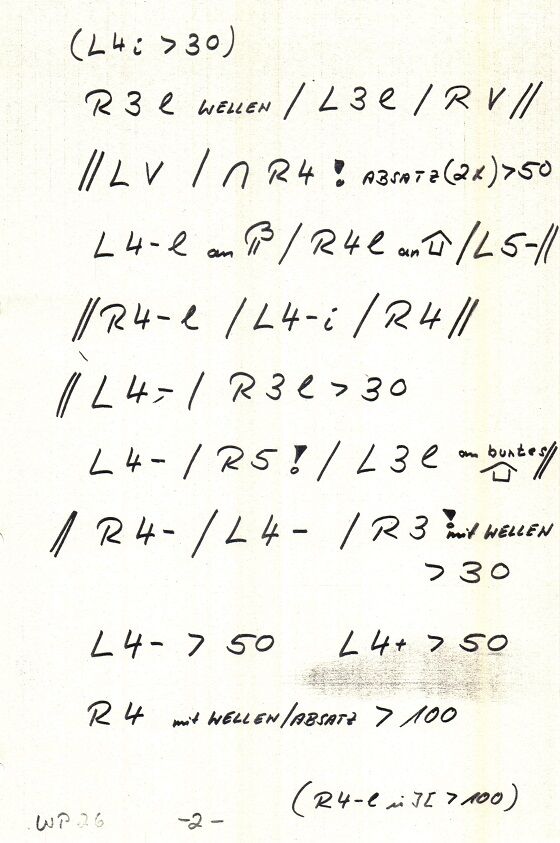 (L4i >30)
R3l WELLEN / L3l / RV//
//LV / ∩ R4 ! ABSATZ(2x)>50
L4-l an / R4l an / L5-//
//R4-l / L4-i / R4//
// L4- / R3l > 30
L4- / R5 ! / L3l am buntes //
// R4- / L4- / R3 ! mit WELLEN
> 30
L4- > 50 L4+ > 50
R4 mit WELLEN/ABSATZ > 100
(R4-l in ][ > 100)
WP26 -2-